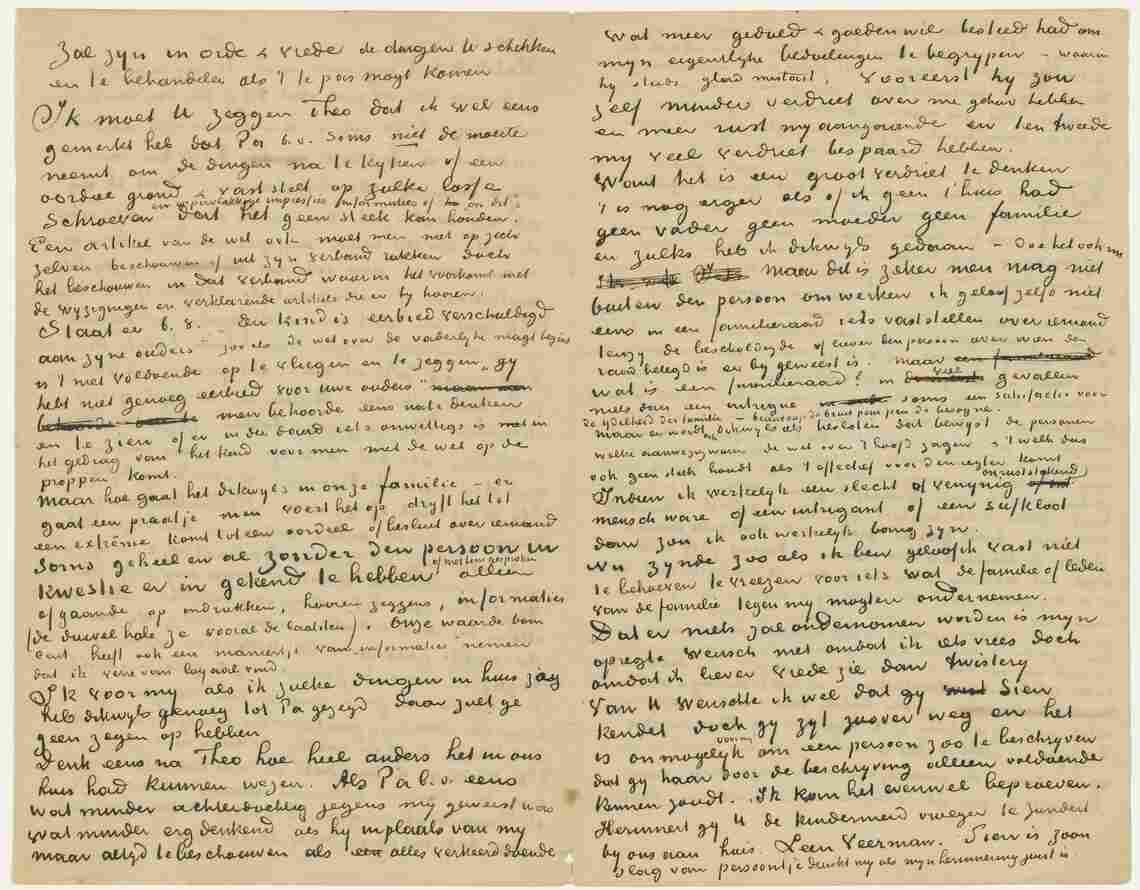 Zal zyn in orde & vrede de dingen te schikken
en te behandelen als 't te pas mogt komen
Ik moet U zeggen Theo dat ik wel eens
gemerkt heb dat Pa b.v. soms niet de moeite
neemt om de dingen na te kyken of een
oordeel grond & vaststelt op zulke losse
en oppervlakkige impressies informaties of on dits
Schroeven dat het geen steek kan houden.
Een artikel van de wet ook moet men niet op zich
zelven beschouwen of uit zyn verband rukken doch
het beschouwen in dat verband waarin het voorkomt met
de wyzigingen en verklarende artikels die er by hooren.
Staat er b.v. een kind is eerbied verschuldigd
aan zyne ouders – zooals de wet over de vaderlyke magt begint
is 't niet voldoende op te vliegen en te zeggen „gy
hebt niet genoeg eerbied voor uwe ouders"
men behoorde eens na te denken
en te zien of er in der daad iets onwilligs is in
het gedrag van het kind voor men met de wet op de
proppen komt.
Maar hoe gaat het dikwyls in onze familie – er
gaat een praatje men voert het op dryft het tot
een extrême komt tot een oordeel of besluit over iemand
soms geheel en al zonder den persoon in
of met hem gesproken
kwestie er in gekend te hebben alleen
afgaande op indrukken, hooren zeggens, informaties
(de duivel hale ze vooral de laatsten). Onze waarde oom
Cent heeft ook een maniertje van informaties nemen
dat ik verre van loyaal vind.
Ik voor my als ik zulke dingen in huis zag
heb dikwyls genoeg tot Pa gezegd daar zult ge
geen zegen op hebben
Denk eens na Theo hoe heel anders het in ons
huis had kunnen wezen. Als Pa b.v. eens
wat minder achterdochtig jegens my geweest was
wat minder erg denkend als hy in plaats van my
maar altyd te beschouwen als alles verkeerd doende
wat meer geduld & goeden wil besteed had om
myn eigentlyke bedoelingen te begrypen – waarin
hy steeds glad mistast. Vooreerst hy zou
zelf minder verdriet over me gehad hebben
en meer rust my aangaande en ten tweede
my veel verdriet bespaard hebben.
Want het is een groot verdriet te denken
't is nog erger als of ik geen t'huis had
geen vader geen moeder geen familie
en zulks heb ik dikwyls gedacht – Doe het ook nu
maar dit is zeker men mag niet
buiten den persoon om werken ik geloof zelfs niet
eens in een familieraad iets vaststellen over iemand
tenzy de beschuldigde of liever den persoon over wien den
raad belegd is er by geweest is. Maar
wat is een familieraad? in veel gevallen
niets dan een intrigue soms een satisfactie voor
de ydelheid der familie –
Maar er wordt dikwyls iets besloten dat bewyst de personen
welke aanwezig waren de wet over 't hoofd zagen & 't welk dus
ook geen steek houdt als 't effectief voor den regter komt
onruststokend
Indien ik werkelyk een slecht of venynig
mensch ware of een intrigant of een sufkloot
dan zou ik ook werkelyk bang zyn.
Nu zynde zoo als ik ben geloof ik vast niet
te behoeven te vreezen voor iets wat de familie of leden
van de familie tegen my mogten ondernemen.
Dat er niets zal ondernomen worden is myn
opregte wensch niet omdat ik iets vrees doch
omdat ik liever vrede zie dan twistery
Van U wenschte ik wel dat gy Sien
kendet doch gy zyt zoover weg en het
voor my
is onmogelyk om een persoon zoo te beschryven
dat gy haar door de beschryving alleen voldoende
kunnen zoudt. Ik kan het evenwel beproeven.
Herinnert gy U de kindermeid vroeger te Zundert
by ons aan huis. Leen Veerman. Sien is zoon
slag van persoontje dunkt my als myn herinnering juist is